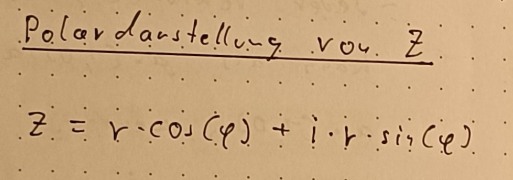 Polardarstellung von Z
Z = r·cos(φ) + i·r·sin(φ)